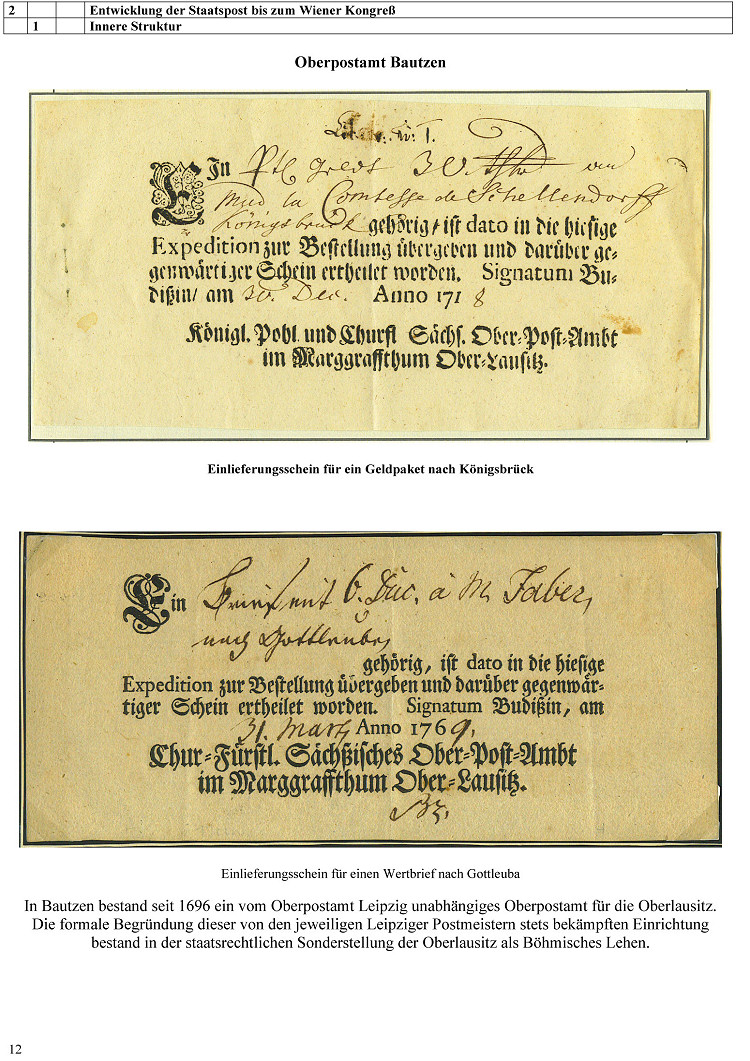 2 Entwicklung der Staatspost bis zum Wiener Kongreß
1 Innere Struktur
Oberpostamt Bautzen
EIn 30. an
la Comtesse de Schellendorff
Königsbrück gehörig/ ist dato in die hiesige
Expedition zur Bestellung übergeben und darüber ge-
genwärtiger Schein ertheilet worden. Signatum Bu-
dißin/ am 30. Dec. Anno 1718
Königl. Pohl. und Churfl Sächs. Ober-Post-Ambt
im Marggraffthum Ober-Lausitz.
Einlieferungsschein für ein Geldpaket nach Königsbrück
Ein Brief mit 6. Duc. à M. Faber,
nach Gottleube,
gehörig, ist dato in die hiesige
Expedition zur Bestellung übergeben und darüber gegenwär-
tiger Schein ertheilet worden. Signatum Budißin, am
31. Marty Anno 1769.
Chur-Fürstl. Sächßisches Ober-Post-Ambt
im Marggraffthum Ober-Lausitz.
Einlieferungsschein für einen Wertbrief nach Gottleuba
In Bautzen bestand seit 1696 ein vom Oberpostamt Leipzig unabhängiges Oberpostamt für die Oberlausitz.
Die formale Begründung dieser von den jeweiligen Leipziger Postmeistern stets bekämpften Einrichtung
bestand in der staatsrechtlichen Sonderstellung der Oberlausitz als Böhmisches Lehen.
12